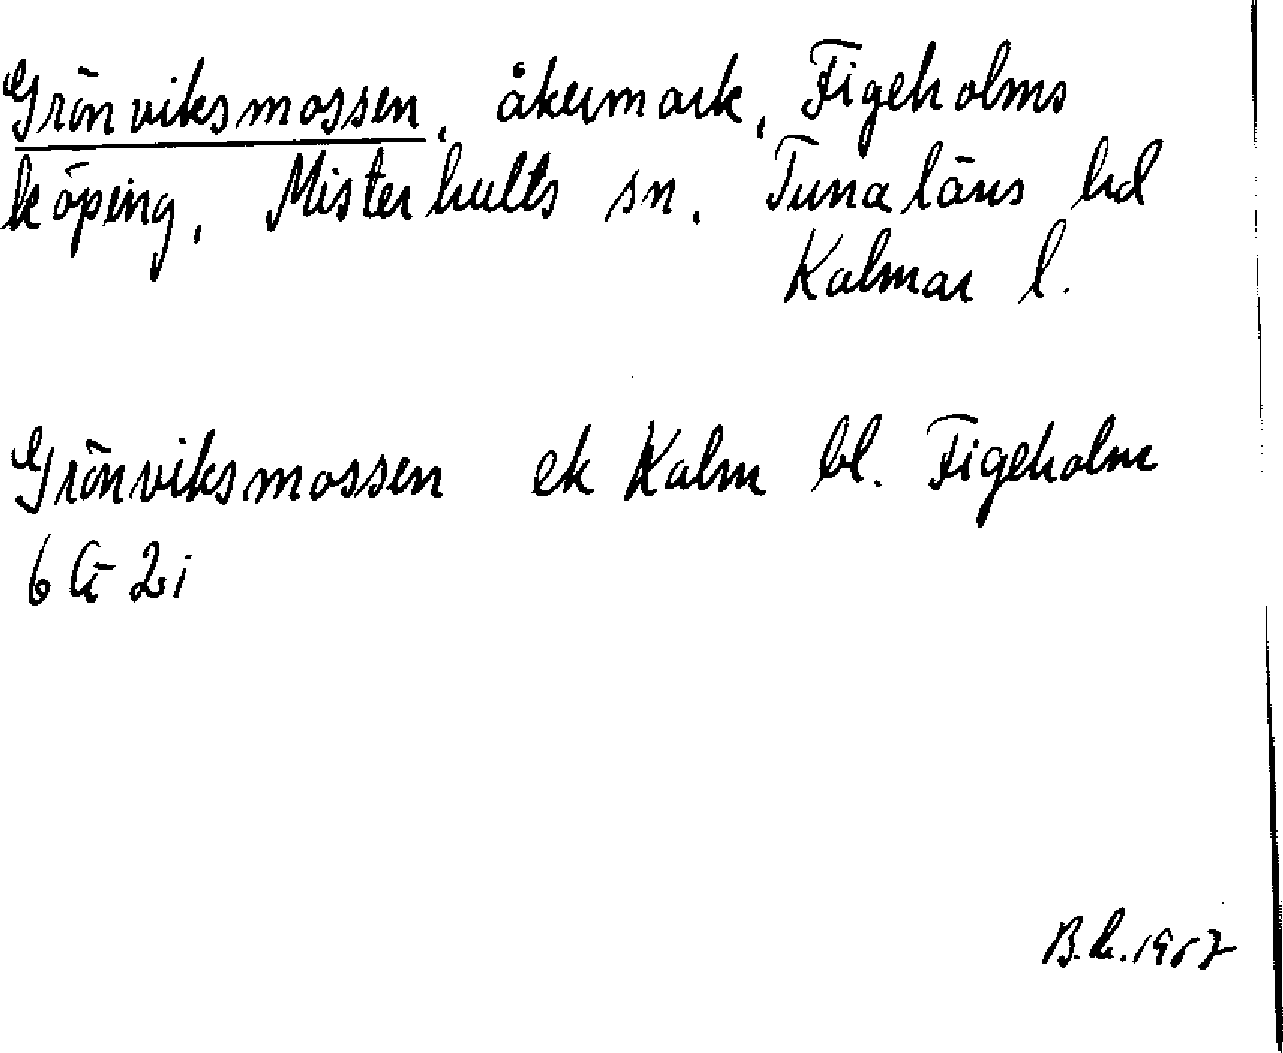 Grönviksmossen, åkermark, Figeholms
köping, Misterhults sn. Tunaläns hd
Kalmar l.
Grönviksmossen ek Kalm bl. Figeholm
6G 2i